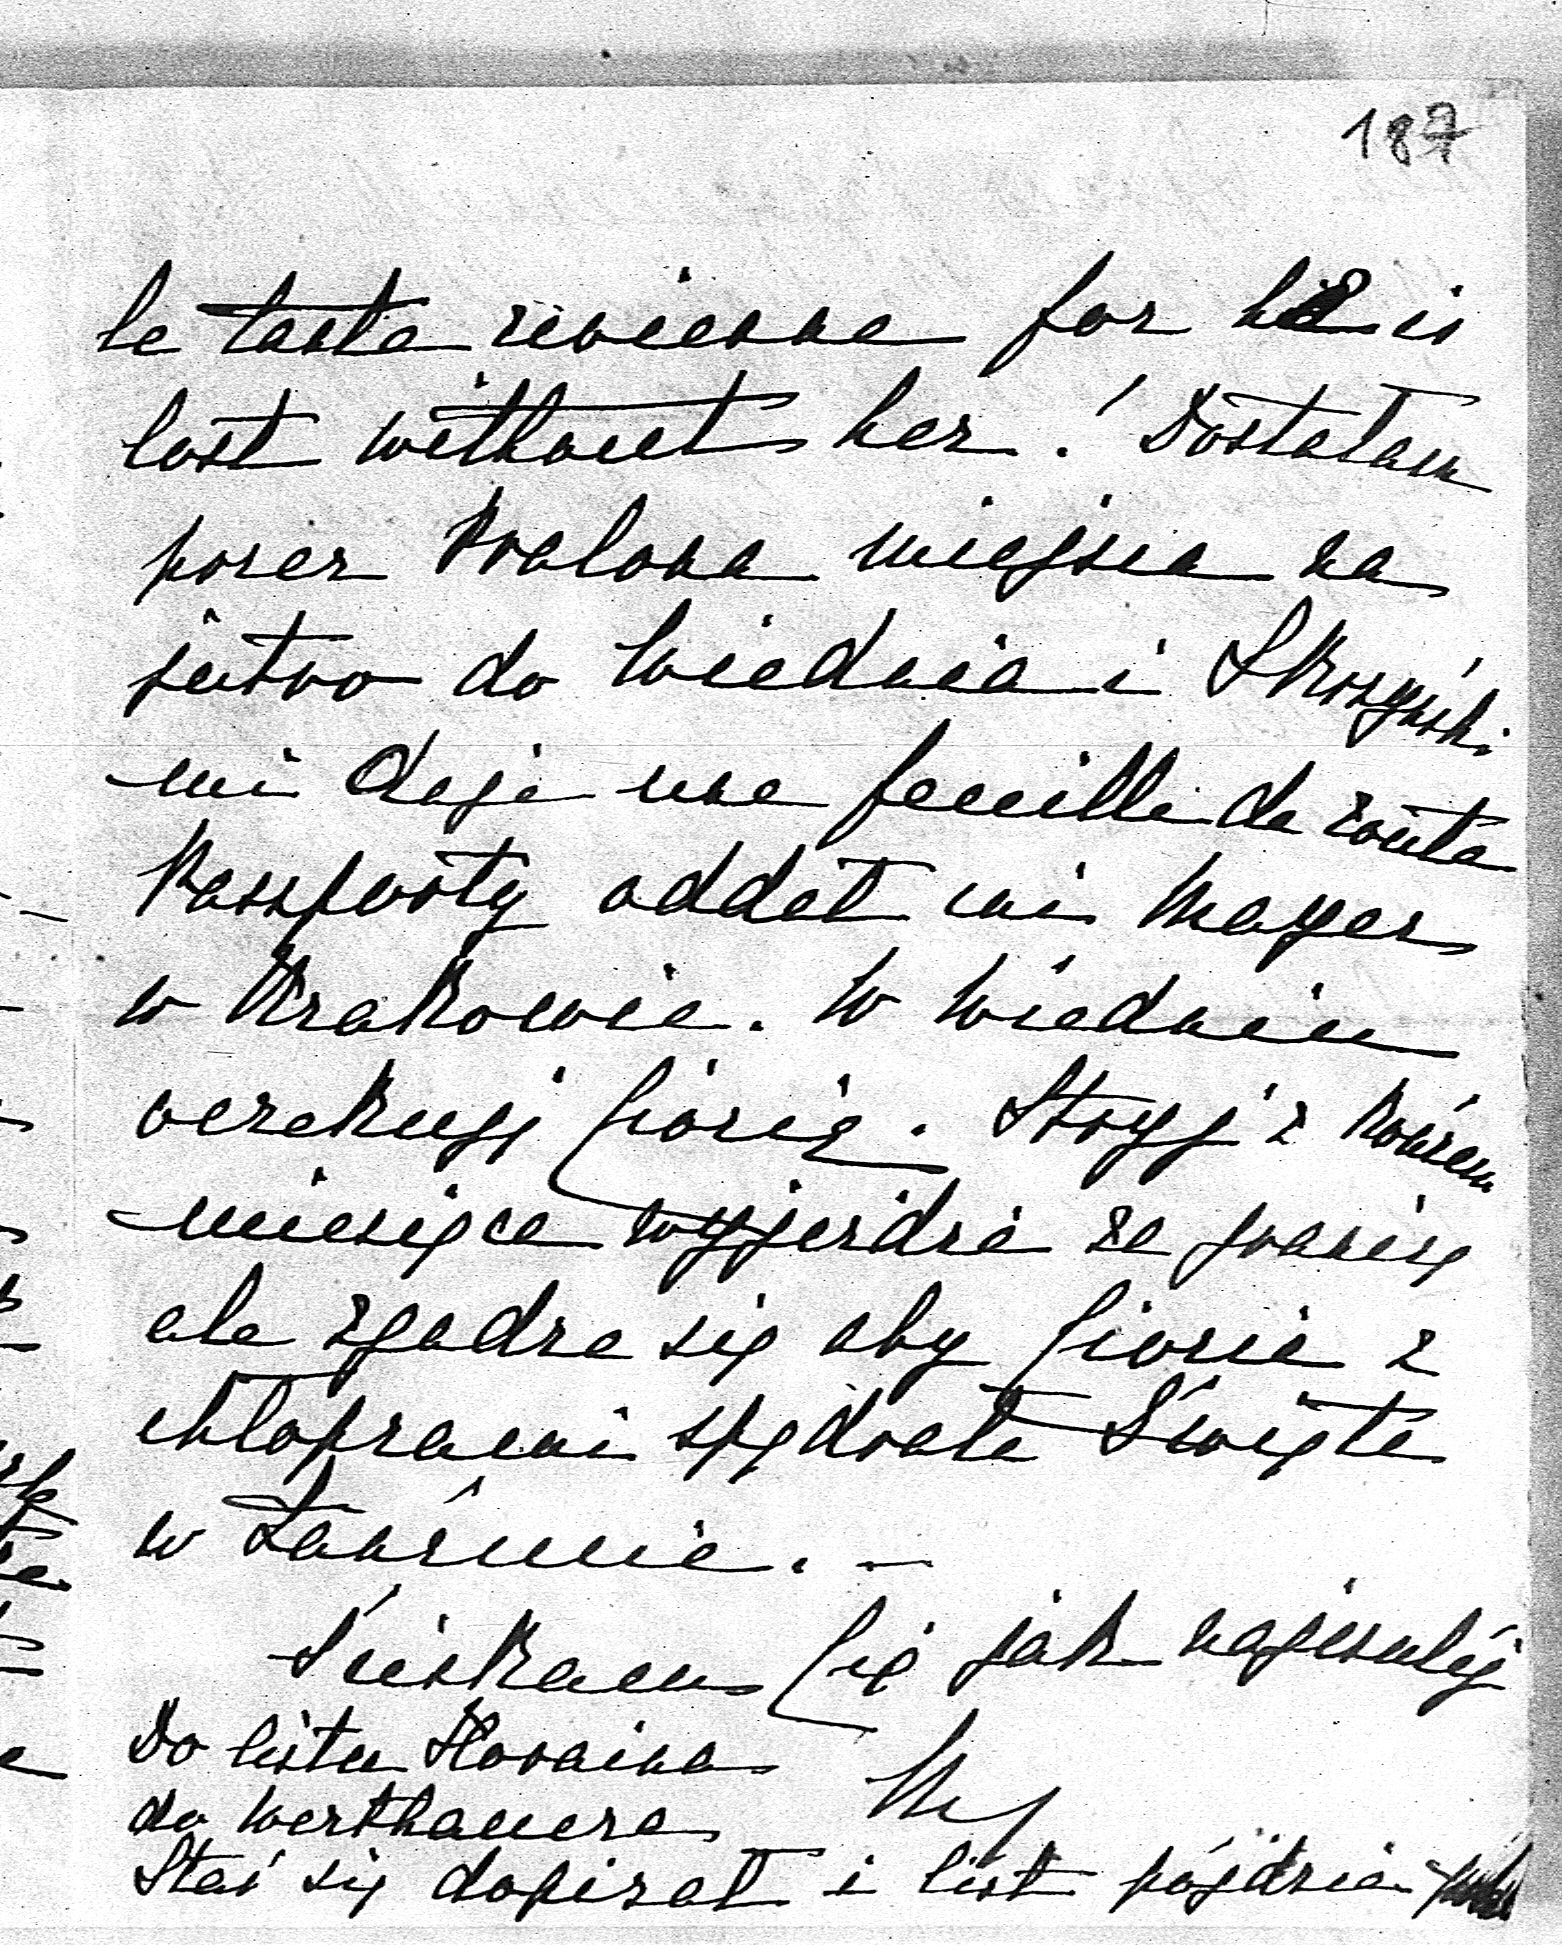 187
le tasta revienne for he is
lost without her! Dostałam
przez Kralona miejsca na
jutro do Wiednia i Skrzyński
mi daje une feuille de route
Paszporty oddał mi Mayer
w Krakowie. W Wiedniu
oczekuję Ciocię. Stryj z końcem
miesiąca wyjeżdża za granicę
ale zgadza się aby Ciocia z
chłopcami spędzała Święta
w Łańcucie. –
Ściskam Cię jak najczulej
Do listu Horaina
do Werthauera
Staś się dopisał i list pójdzie